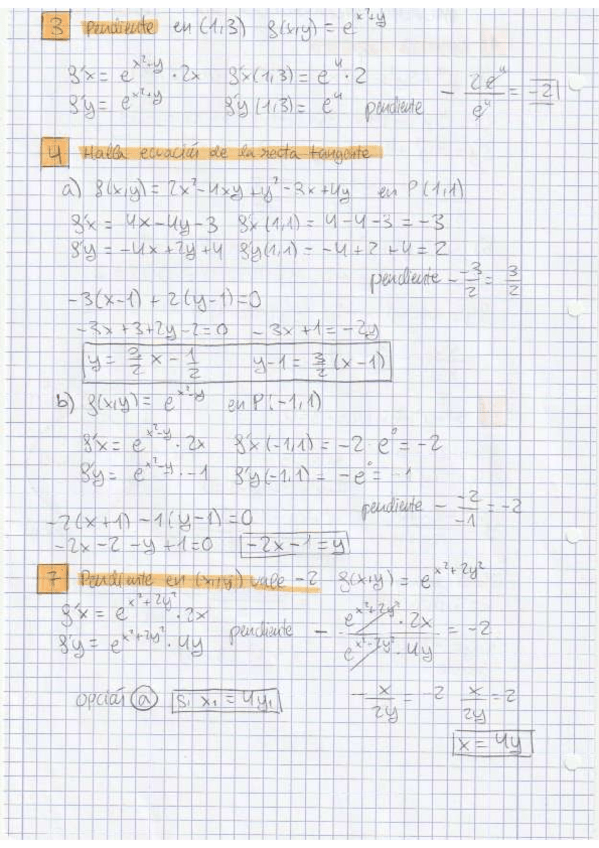 3 Pendiente en (1,3) f(x,y) = e^(x²+y)
f'x = e^(x²+y) · 2x f'x(1,3) = e⁴ · 2
f'y = e^(x²+y) f'y(1,3) = e⁴ pendiente - 2e⁴/e⁴ = -2
4 Halla ecuación de la recta tangente
a) f(x,y) = 2x² - 4xy + y² - 3x + 4y en P(1,1)
f'x = 4x - 4y - 3 f'x(1,1) = 4 - 4 - 3 = -3
f'y = -4x + 2y + 4 f'y(1,1) = -4 + 2 + 4 = 2
pendiente - -3/2 = 3/2
-3(x-1) + 2(y-1) = 0
-3x + 3 + 2y - 2 = 0 -3x + 1 = -2y
y = 3/2 x - 1/2 y - 1 = 3/2 (x-1)
b) f(x,y) = e^(x²-y) en P(-1,1)
f'x = e^(x²-y) · 2x f'x(-1,1) = -2 · e⁰ = -2
f'y = e^(x²-y) · -1 f'y(-1,1) = -e⁰ = -1
pendiente - -2/-1 = -2
-2(x+1) - 1(y-1) = 0
-2x - 2 - y + 1 = 0 -2x - 1 = y
7 Pendiente en (x,y) vale -2 f(x,y) = e^(x²+2y²)
f'x = e^(x²+2y²) · 2x
f'y = e^(x²+2y²) · 4y pendiente - e^(x²+2y²) · 2x / e^(x²+2y²) · 4y = -2
opción a Si x₁ = 4y₁ - x/2y = -2 x/2y = 2
x = 4y